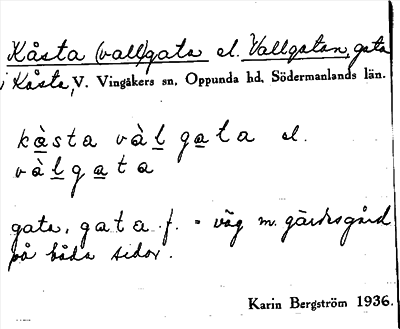 Kåsta (vall)gata el. Vallgatan, gata
i Kåsta, V. Vingåkers sn, Oppunda hd, Södermanlands län.
kàsta vàl gata el.
vàlgata
gata, gata f. = väg m. gärdesgård
på båda sidor.
Karin Bergström 1936.